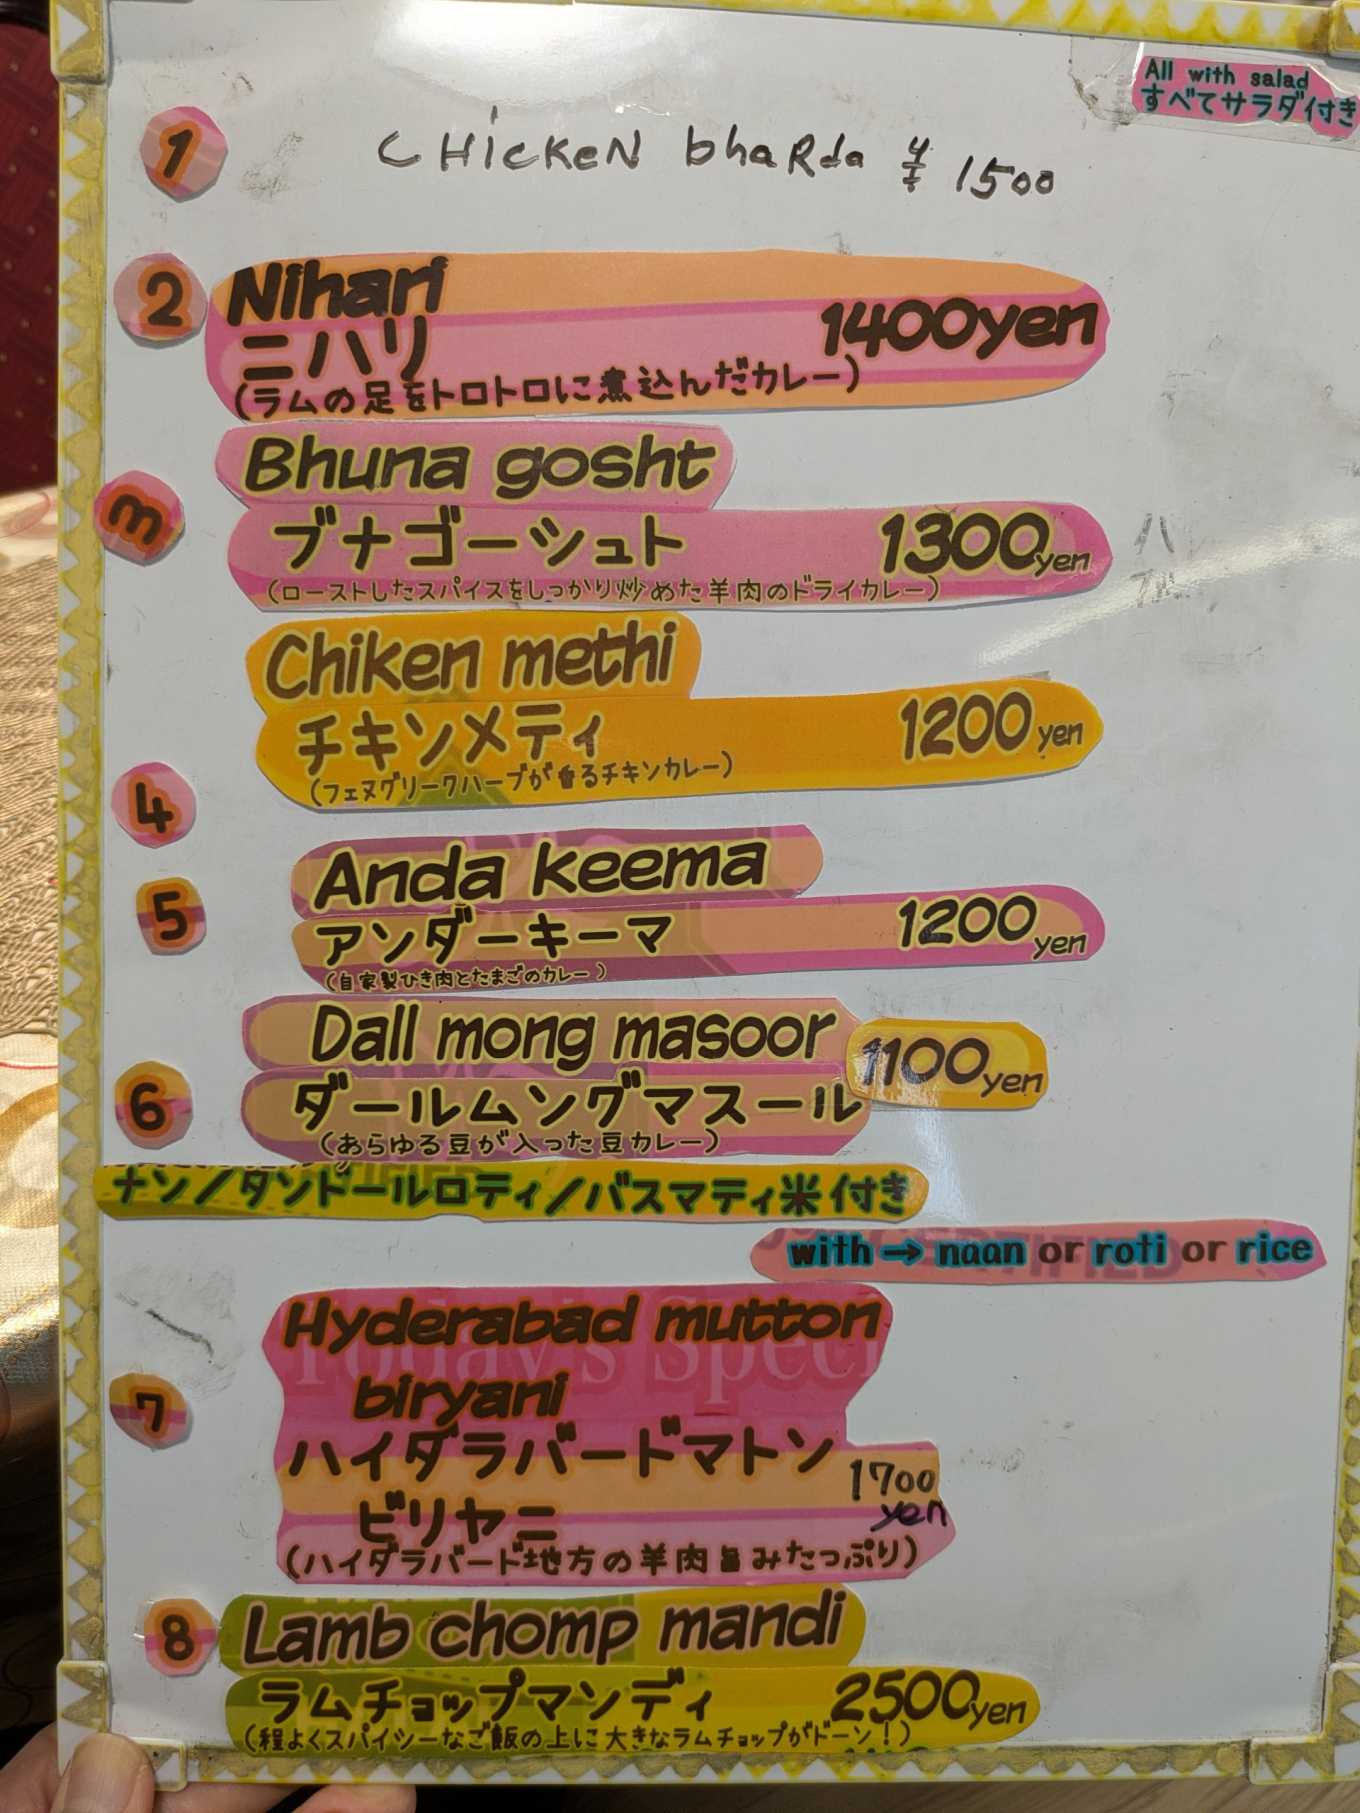 All with salad
すべてサラダ付き
1
CHicKeN bhaRda ¥ 1500
2
Nihari
ニハリ
1400yen
(ラムの足をトロトロに煮込んだカレー)
3
Bhuna gosht
ブナゴーシュト
1300yen
(ローストしたスパイスをしっかり炒めた羊肉のドライカレー)
Chiken methi
チキンメティ
1200yen
(フェヌグリークハーブが香るチキンカレー)
4
5
Anda keema
アンダーキーマ
1200yen
(自家製ひき肉とたまごのカレー)
6
Dall mong masoor
1100yen
ダールムングマスール
(あらゆる豆が入った豆カレー)
ナン/タンドールロティ/バスマティ米付き
with→ naan or roti or rice
7
Hyderabad mutton
biryani
ハイダラバードマトン
ビリヤニ
1700
yen
(ハイダラバード地方の羊肉旨みたっぷり)
8
Lamb chomp mandi
ラムチョップマンディ
2500yen
(程よくスパイシーなご飯の上に大きなラムチョップがドーン!)